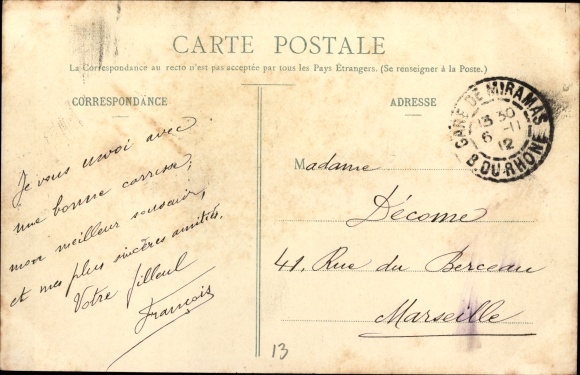 CARTE POSTALE
La Correspondance au recto n'est pas acceptée par tous les Pays Étrangers. (Se renseigner à la Poste.)
CORRESPONDANCE
Je vous envoi avec
une bonne caresse,
mon meilleur souvenir,
et mes plus sincères amitiés.
Votre filleul
François
ADRESSE
GARE DE MIRAMAS
13 30
6 - 11
12
B. DU-RHÔNE
Madame
Décome
41, Rue du Berceau
Marseille
13